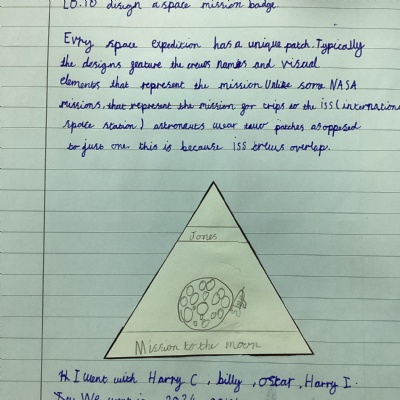 LO: To design a space mission badge.
Evry space expedition has a unique patch. Typically
the designs geature the crews names and visual
elements that represent the mission Unlike some NASA
missions. that represent the mission gor trips to the ISS (internationa
space station) astronauts wear two patches as opposed
to just one this is because ISS crews overlap.
Jones
Mission to the moon
H. I went with Harry C, billy, oscar, Harry I.
We